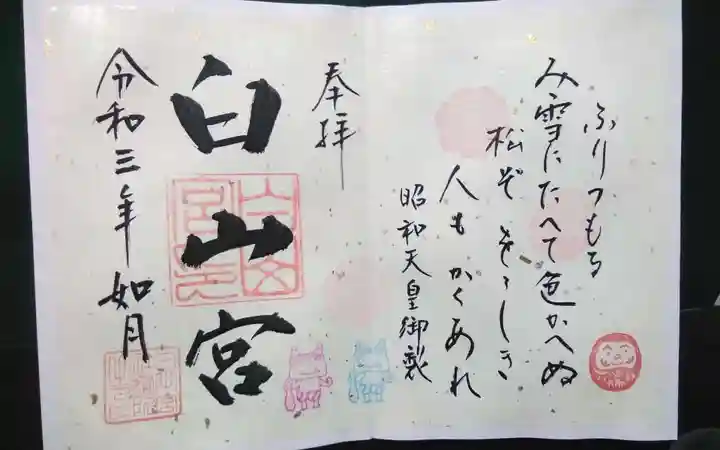 ふりつもる
み雪にたへて色かへぬ
松ぞをゝしき
人もかくあれ
昭和天皇御製
奉拝
白山宮
令和三年如月